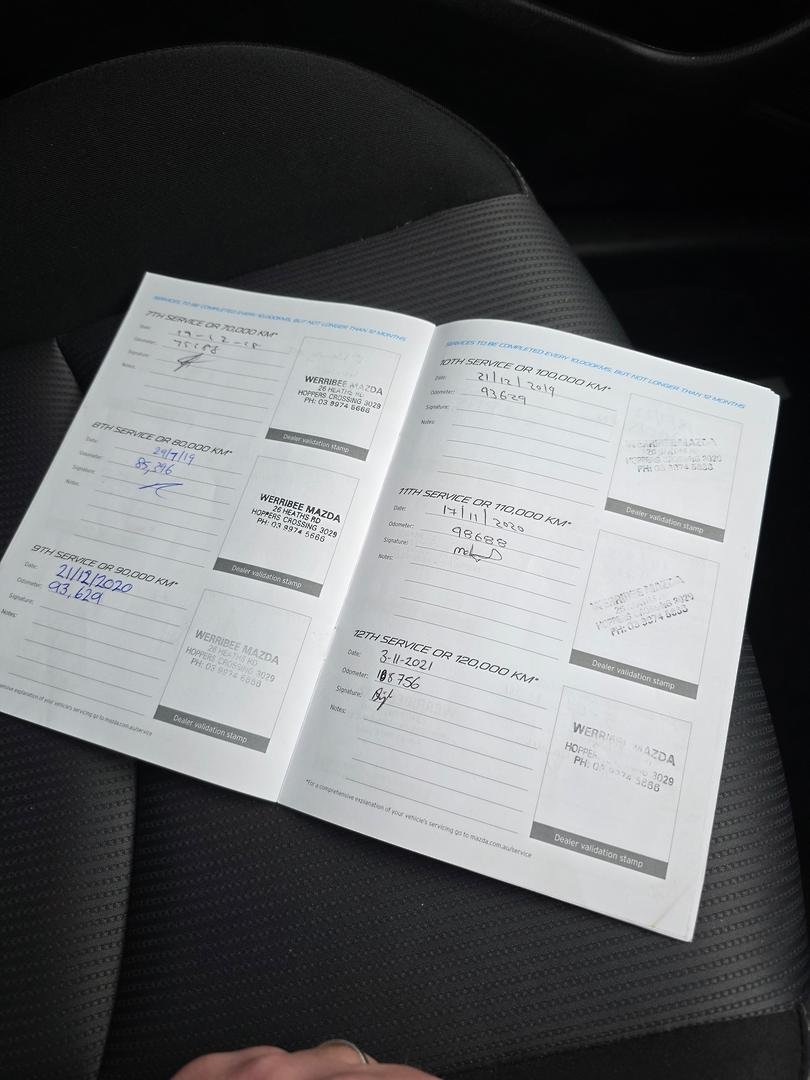 SERVICES TO BE COMPLETED EVERY 10,000KMS, BUT NOT LONGER THAN 12 MONTHS
7TH SERVICE OR 70,000 KM*
Date: 19-12-18
Odometer:
Signature:
Notes:
WERRIBEE MAZDA
26 HEATHS RD
HOPPERS CROSSING 3029
PH: 03 8974 5666
Dealer validation stamp
8TH SERVICE OR 80,000 KM*
Date: 29/7/19
Odometer: 85,396
Signature:
Notes:
WERRIBEE MAZDA
26 HEATHS RD
HOPPERS CROSSING 3029
PH: 03 8974 5666
Dealer validation stamp
9TH SERVICE OR 90,000 KM*
Date: 21/12/2020
Odometer: 93,629
Signature:
Notes:
WERRIBEE MAZDA
26 HEATHS RD
HOPPERS CROSSING 3029
PH: 03 8974 5666
Dealer validation stamp
explanation of your vehicle's servicing go to mazda.com.au/service
SERVICES TO BE COMPLETED EVERY 10,000KMS, BUT NOT LONGER THAN 12 MONTHS
10TH SERVICE OR 100,000 KM*
Date: 21/12/2019
Odometer: 93629
Signature:
Notes:
WERRIBEE MAZDA
26 HEATHS RD
HOPPERS CROSSING 3029
PH: 03 8974 5666
Dealer validation stamp
11TH SERVICE OR 110,000 KM*
Date: 17/11/2020
Odometer: 98688
Signature:
Notes:
WERRIBEE MAZDA
26 HEATHS RD
HOPPERS CROSSING 3029
PH: 03 8974 5666
Dealer validation stamp
12TH SERVICE OR 120,000 KM*
Date: 3-11-2021
Odometer: 108756
Signature:
Notes:
WERRIBEE MAZDA
HOPPERS 3029
PH: 03 8974 5666
Dealer validation stamp
*For a comprehensive explanation of your vehicle's servicing go to mazda.com.au/service